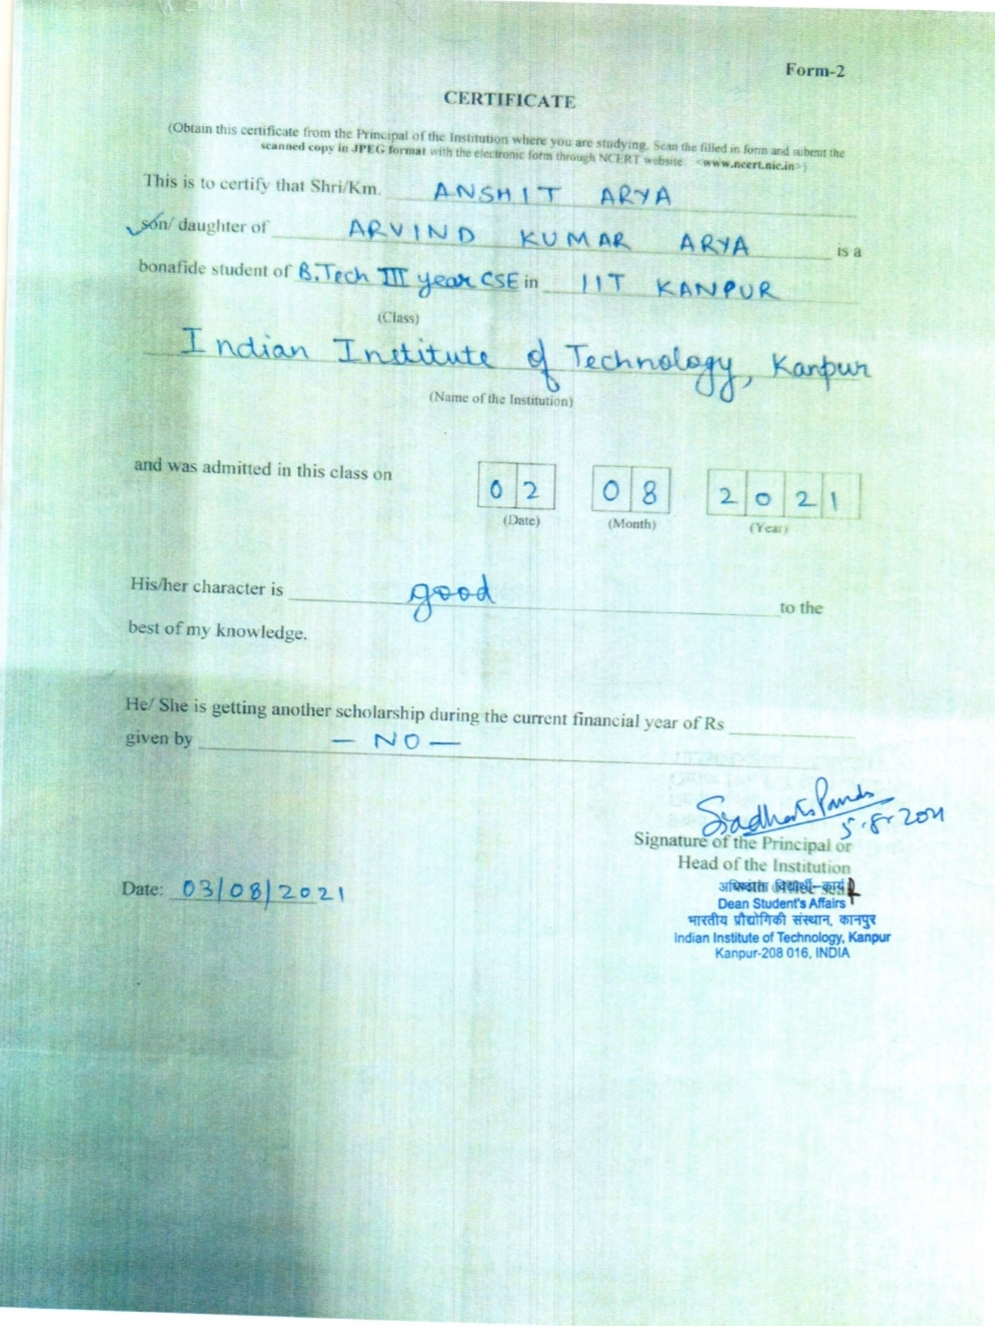 Form-2
CERTIFICATE
(Obtain this certificate from the Principal of the Institution where you are studying. Scan the filled in form and submit the
scanned copy in JPEG format with the electronic form through NCERT website. <www.ncert.nic.in>)
This is to certify that Shri/Km. ANSHIT ARYA
son/ daughter of ARVIND KUMAR ARYA is a
bonafide student of B.Tech III year CSE in IIT KANPUR
(Class)
Indian Institute of Technology, Kanpur
(Name of the Institution)
and was admitted in this class on 02 08 2021
(Date) (Month) (Year)
His/her character is good to the
best of my knowledge.
He/ She is getting another scholarship during the current financial year of Rs
given by — NO —
5.8.2021
Signature of the Principal or
Head of the Institution
Date: 03/08/2021
अधिष्ठाता विद्यार्थी-कार्य
Dean Student's Affairs
भारतीय प्रौद्योगिकी संस्थान, कानपुर
Indian Institute of Technology, Kanpur
Kanpur-208 016, INDIA